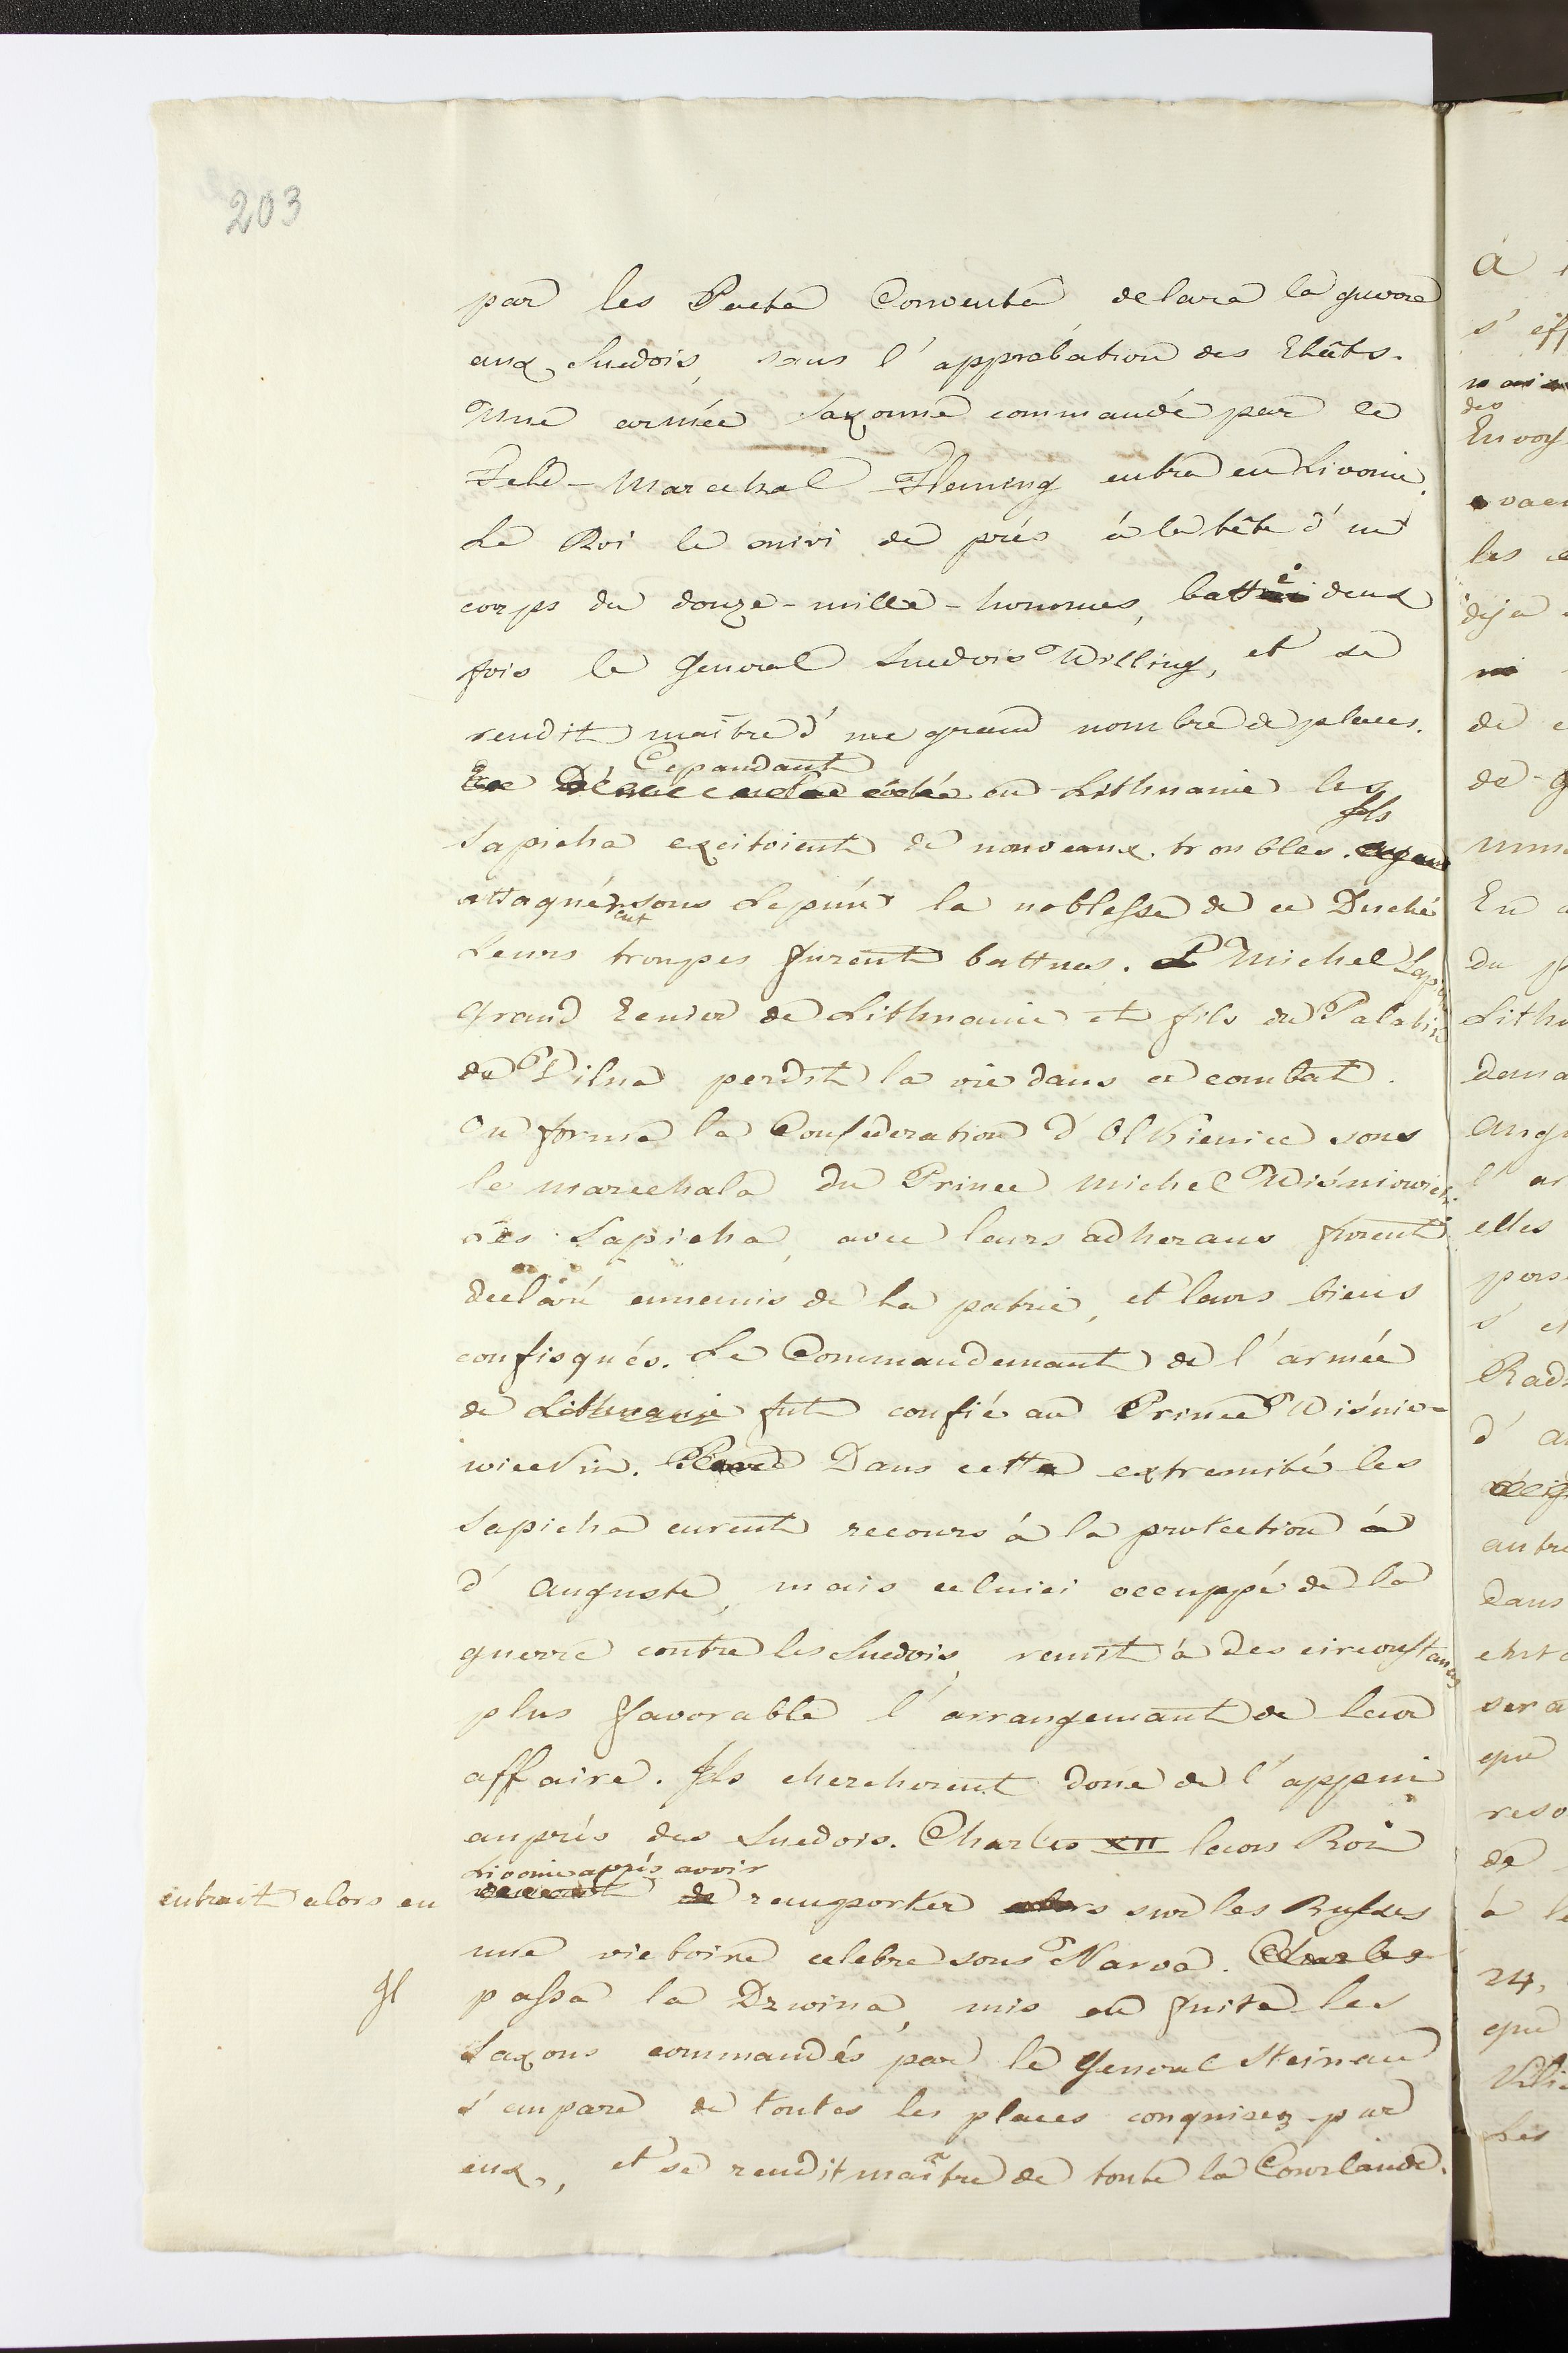 203
par les Pacta Conventa delara la guerre
aux Suedois, sans l'approbation des Etâts.
Une armée Saxonne commandé par le
Feld-Marechal Fleming entra en Livonie.
Le Roi le suivi de prés à la tête d'un
corps du douze-mille-hommes, batti deux
fois le General Suedois Welling, et se
rendit maître d'un grand nombre de places.
Cepandant
en Lithuanie les
Ils
Sapieha excitoient de nouveaux troubles. ayant
attaquérent sous Lepún la noblesse de ce Duché
Leurs troupes furent battues. Michel Sapi
Grand Ecuier de Lithuanie et fils du Palatin
de Vilna perdit la vie dans ce combat.
On forma la Confederation d'Olkienice sous
le marechala du Prince Michel Wiśniowiecki.
Les Sapieha, avec leurs adherans furent
declaré ennemis de la patrie, et leurs biens
confisqués. Le Commandemant de l'armée
de Lithuanie fut confié au Prince Wiśnio-
wieckin. Dans cette extremité les
Sapieha eurent recours à la protection à
d'Auguste, mais celuici occuppé de la
guerre contre les Suedois, remit à des circonstances
plus favorable l'arrangemant de leur
affaire. Ils cherchorent donc de l'appui
auprés des Suedois. Charles XII leurs Roi
Livonie aprés avoir
entrait alors en de ramporter alors sur les Russes
une victoire celebre sous Narva. Charles
Il passa la Dzwina, mis en fuite les
Saxons commandés par le General Steinau
s'empara de toutes les places conquises par
eux, et se rendit maître de toute la Courlande.